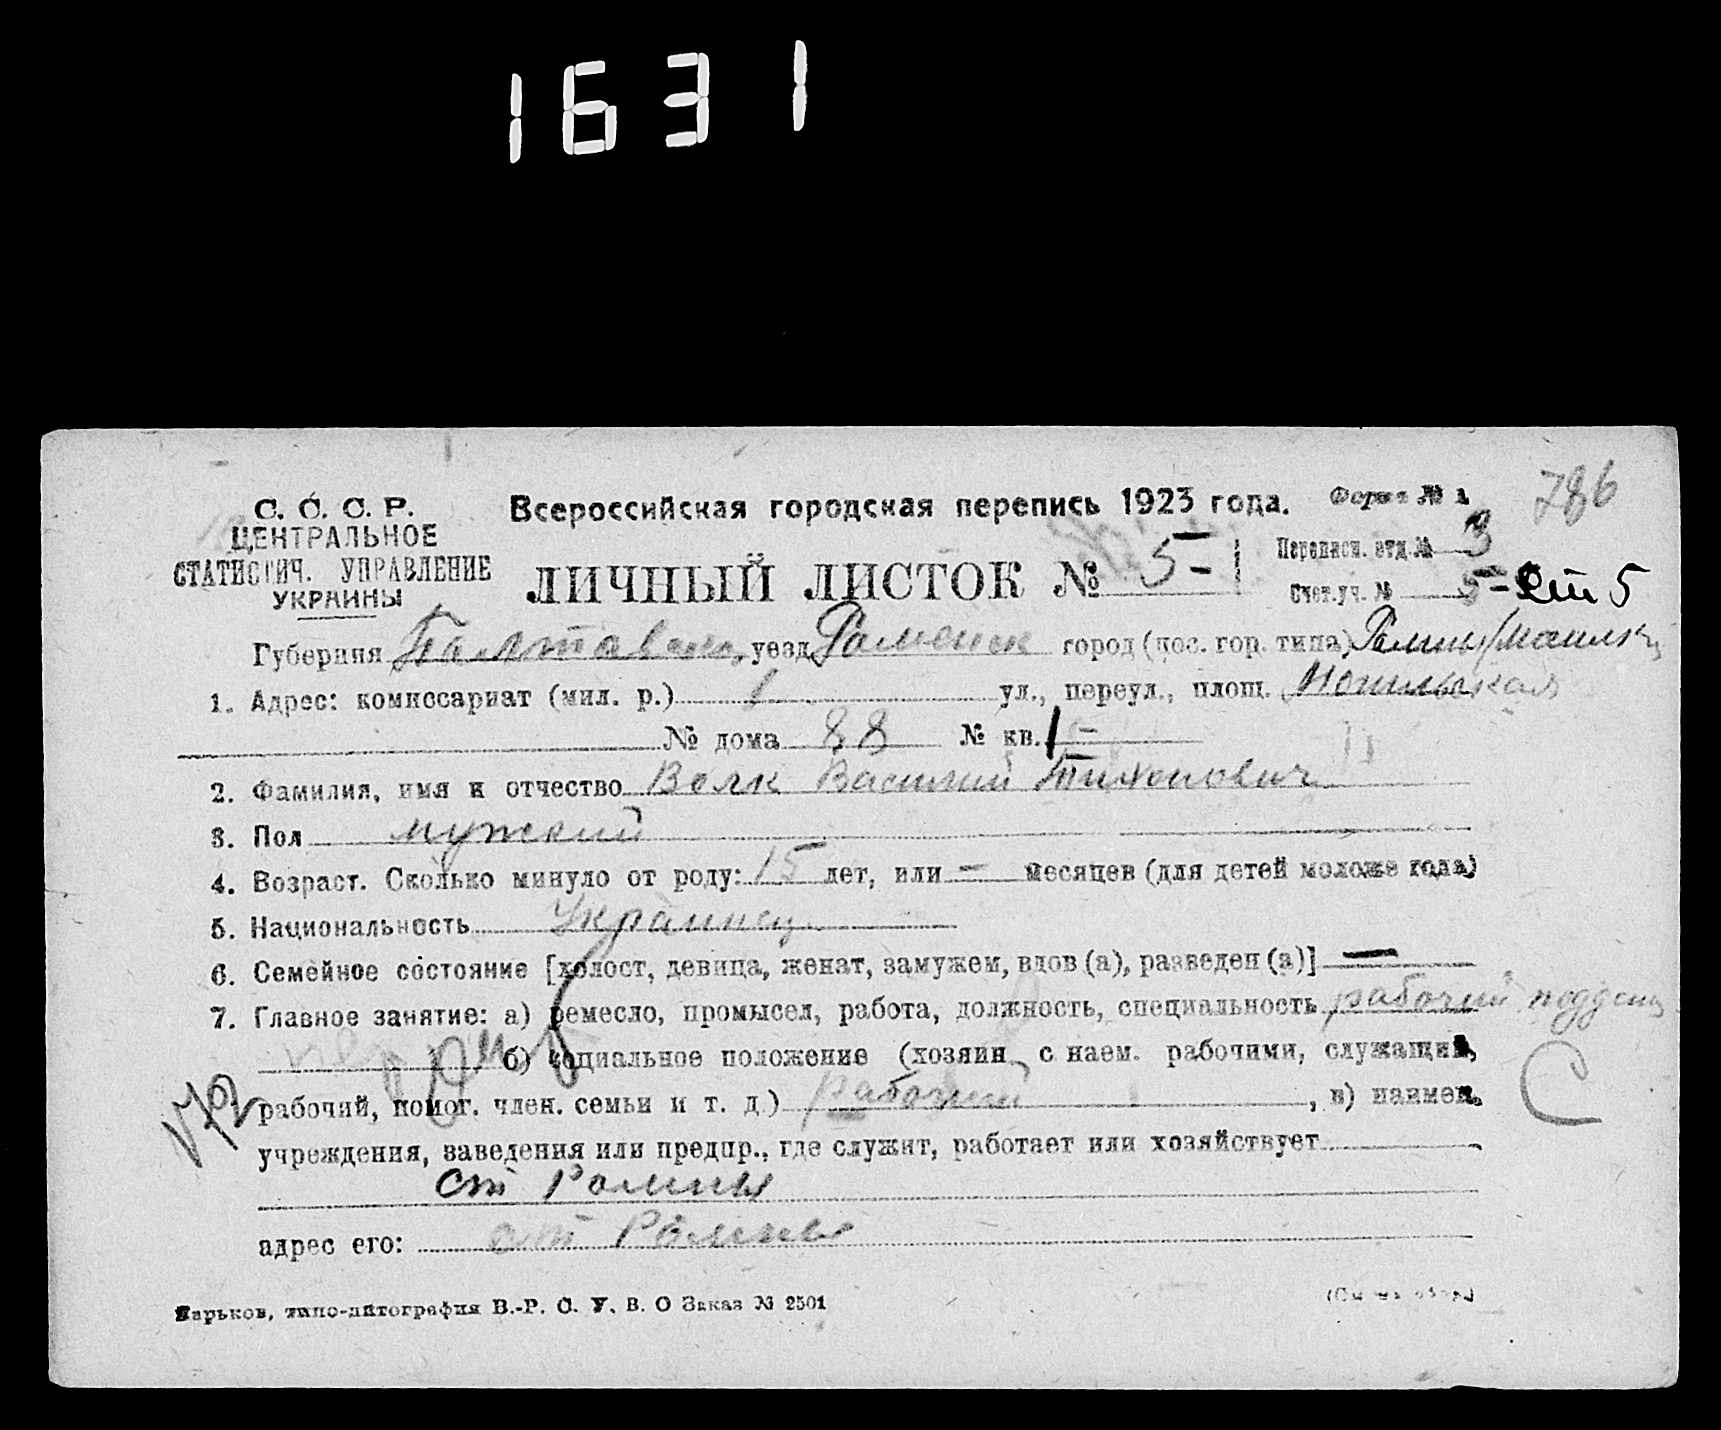 1631
786
С. С. С. Р.
ЦЕНТРАЛЬНОЕ
СТАТИСТИЧ. УПРАВЛЕНИЕ
УКРАИНЫ
Всероссийская городская перепись 1923 года.
Форма № 1
ЛИЧНЫЙ ЛИСТОК № 5-1
Переписн. отд. № 3
Счет.уч. № 5
Губерния Полтавская, уезд Роменск город (пос. гор. типа) Ромны
1. Адрес: комиссариат (мил. р.) 1 ул., переул., площ.
№ дома 88 № кв. 1 -
2. Фамилия, имя и отчество Волк Василий Тихонович
3. Пол мужской
4. Возраст. Сколько минуло от роду: 15 лет, или - месяцев (для детей моложе года)
5. Национальность Украинец
6. Семейное состояние [холост, девица, женат, замужем, вдов (а), разведен (а)] —
7. Главное занятие: а) ремесло, промысел, работа, должность, специальность рабочий
б) социальное положение (хозяин с наем. рабочими, служащий,
рабочий, помог. член. семьи и т. д.) рабочий, в) наимен.
учреждения, заведения или предпр., где служит, работает или хозяйствует
ст Ромны
адрес его: ст Ромны
С
Харьков, типо-литография В.-Р. С. У. В. О Заказ № 2501